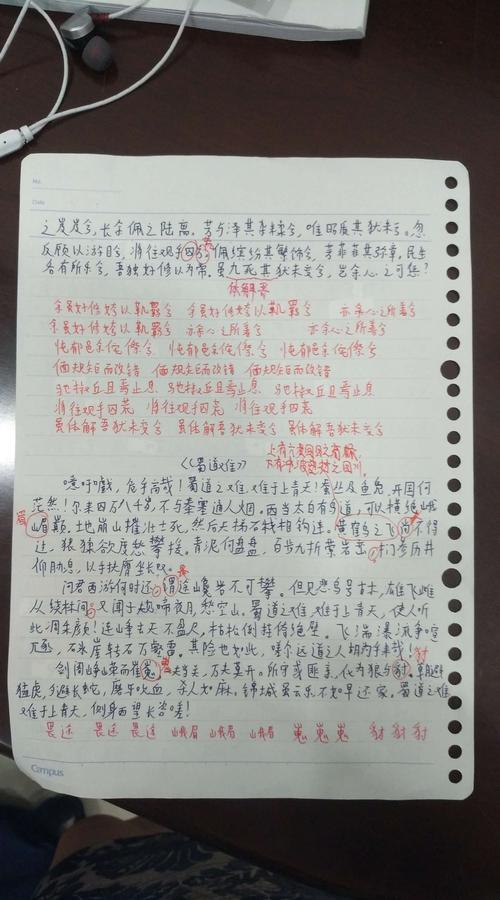 No.
Date
之岌岌兮,长余佩之陆离。芳与泽其杂糅兮,唯昭质其犹未亏。忽
反顾以游目兮,将往观乎四荒。佩缤纷其繁饰兮,芳菲菲其弥章。民生
各有所乐兮,吾独好修以为常。虽九死其犹未变兮,岂余心之可惩?
体解吾
余虽好修姱以鞿羁兮 余虽好修姱以鞿羁兮 亦余心之所善兮
余虽好修姱以鞿羁兮 亦余心之所善兮 亦余心之所善兮
忳郁邑余侘傺兮 忳郁邑余侘傺兮 忳郁邑余侘傺兮
偭规矩而改错 偭规矩而改错 偭规矩而改错
驰椒丘且焉止息 驰椒丘且焉止息 驰椒丘且焉止息
将往观乎四荒 将往观乎四荒 将往观乎四荒
虽体解吾犹未变兮 虽体解吾犹未变兮 虽体解吾犹未变兮
《蜀道难》
上有六龙回日之高标,
下有冲波逆折之回川。
噫吁嚱,危乎高哉!蜀道之难,难于上青天!蚕丛及鱼凫,开国何
茫然!尔来四万八千岁,不与秦塞通人烟。西当太白有鸟道,可以横绝峨
眉巅。地崩山摧壮士死,然后天梯石栈相钩连。黄鹤之飞尚不得
过,猿猱欲度愁攀援。青泥何盘盘,百步九折萦岩峦。扪参历井
仰胁息,以手抚膺坐长叹。
问君西游何时还?谓途巉岩不可攀。但见悲鸟号古木,雄飞雌
从绕林间。又闻子规啼夜月,愁空山。蜀道之难,难于上青天,使人听
此凋朱颜!连峰去天不盈尺,枯松倒挂倚绝壁。飞湍瀑流争喧
豗,砯崖转石万壑雷。其险也如此,嗟尔远道之人胡为乎来哉!豺
剑阁峥嵘而崔嵬,一夫当关,万夫莫开。所守或匪亲,化为狼与豺。朝避
猛虎,夕避长蛇,磨牙吮血,杀人如麻。锦城虽云乐,不如早还家。蜀道之难,
难于上青天,侧身西望长咨嗟!
畏途 畏途 畏途 峨眉 峨眉 峨眉 嵬嵬嵬 豺豺豺
Campus